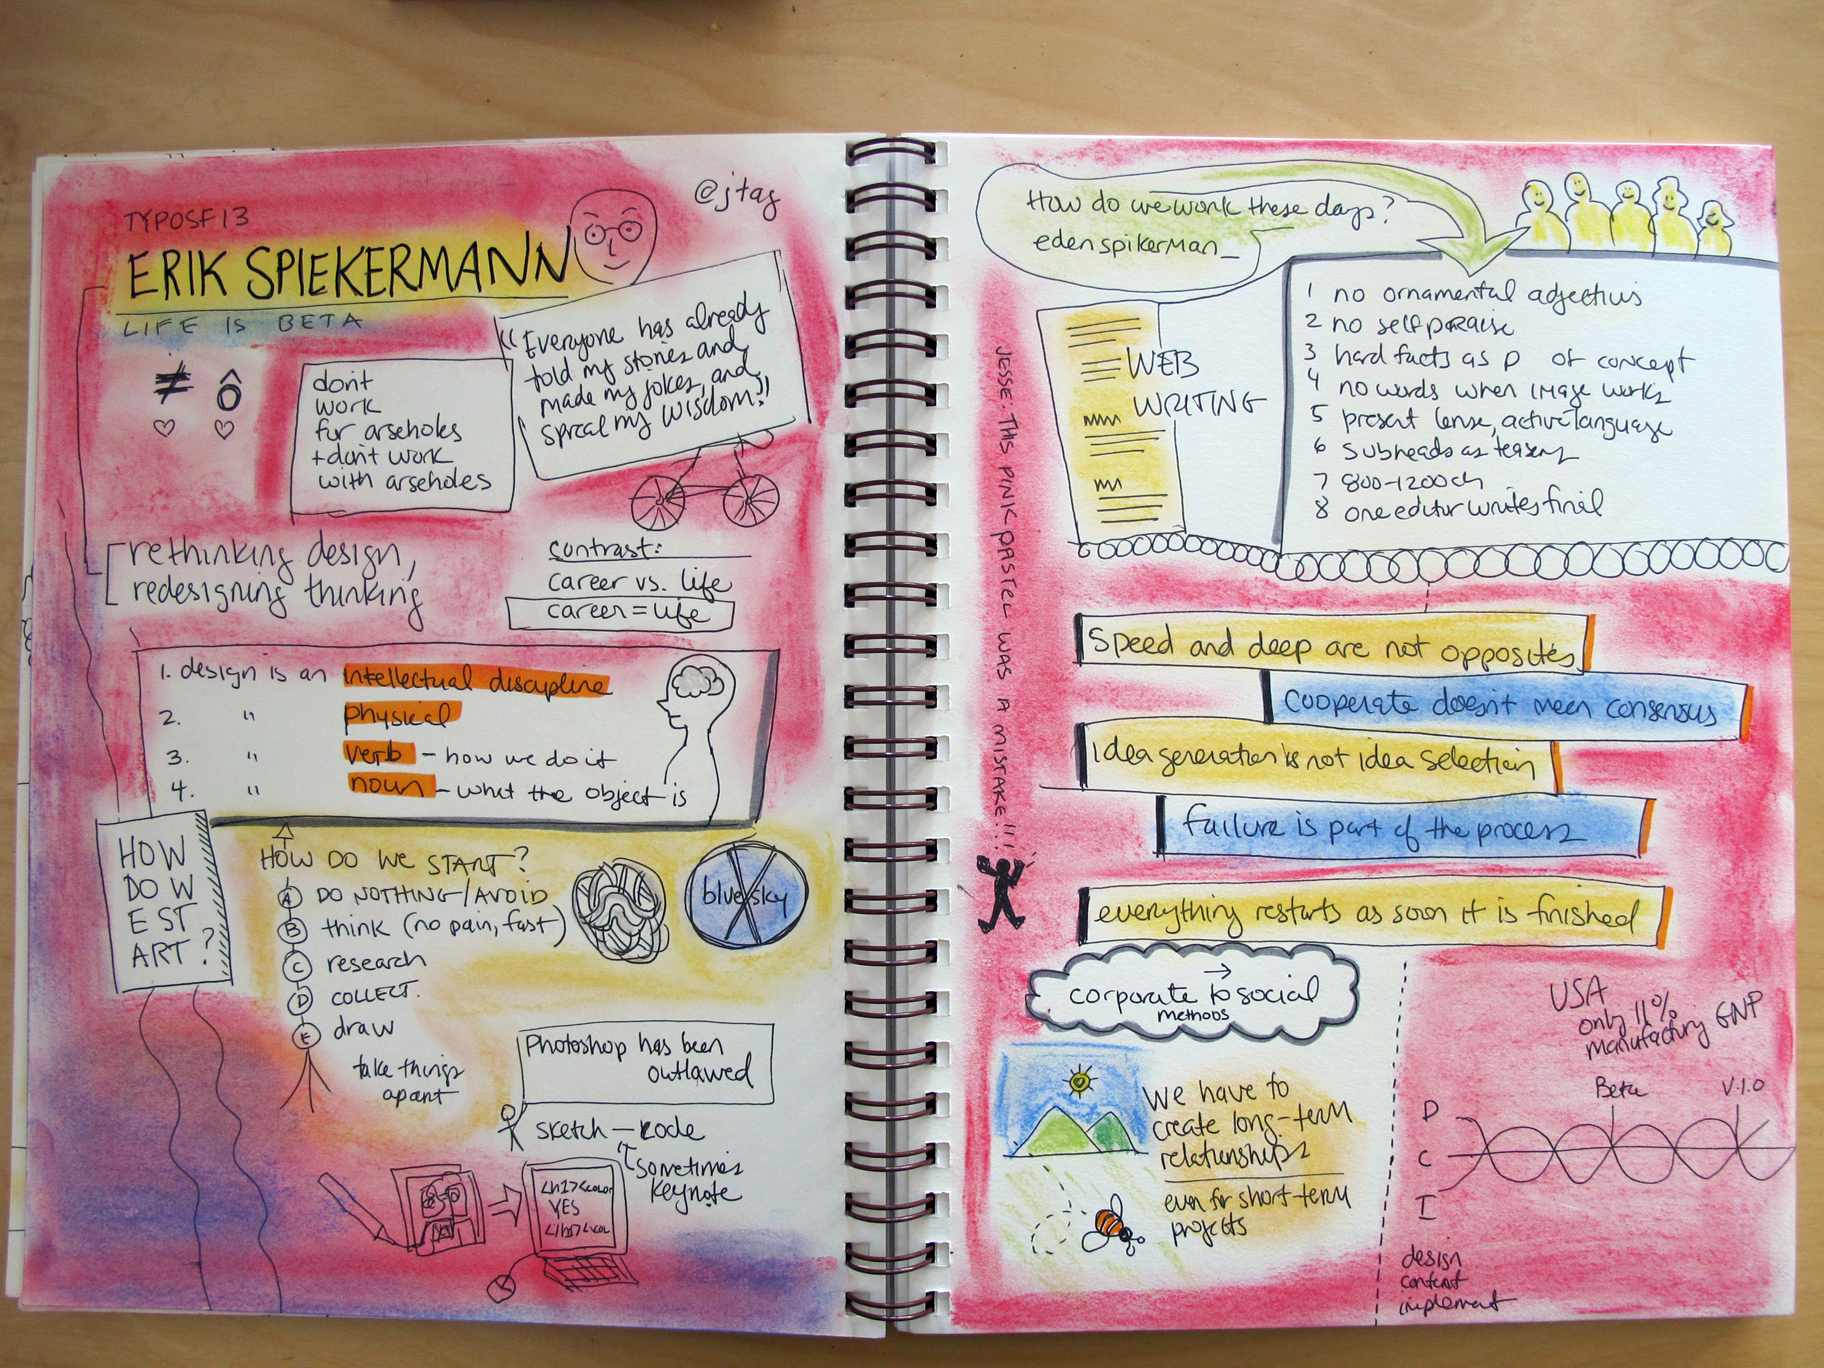 TYPOSF13
@jtag
ERIK SPIEKERMANN
LIFE IS BETA
≠ ô
♡ ♡
don't
work
for arseholes
+ don't work
with arseholes
"Everyone has already
told my stories and
made my jokes, and
spread my wisdom!"
rethinking design,
redesigning thinking
contrast:
career vs. life
career = life
1. design is an intellectual discipline
2. " physical
3. " verb - how we do it
4. " noun - what the object is
HOW
DO W
E ST
ART?
HOW DO WE START?
A DO NOTHING/AVOID
B think (no pain, fast)
C research
D COLLECT.
E draw
take things
apart
blue sky
Photoshop has been
outlawed
sketch – code
sometimes
keynote
<h1><color
YES
</h1></col
How do we work these days?
edenspikerman_
WEB
WRITING
1 no ornamental adjectives
2 no self praise
3 hard facts as p of concept
4 no words when image works
5 present tense, active language
6 subheads as teasers
7 800-1200ch
8 one editor writes final
JESSE: THIS PINK PASTEL WAS A MISTAKE!!!
Speed and deep are not opposites
Cooperate doesn't mean consensus
Idea generation is not idea selection
failure is part of the process
everything restarts as soon it is finished
corporate → to social
METHODS
We have to
create long-term
relationships
even for short-term
projects
USA
only 11%
manufacturing GNP
Beta V.1.0
D
C
I
design
content
implement